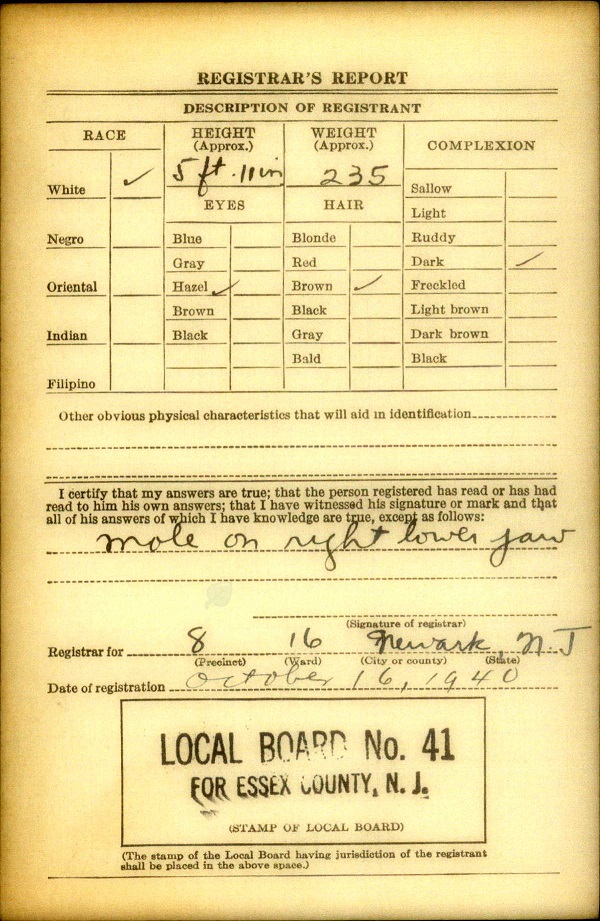 REGISTRAR'S REPORT
DESCRIPTION OF REGISTRANT
RACE
HEIGHT
(Approx.)
WEIGHT
(Approx.)
COMPLEXION
5 ft. 11 in
235
White ✓
Sallow
EYES
HAIR
Light
Negro
Blue
Blonde
Ruddy
Gray
Red
Dark ✓
Oriental
Hazel ✓
Brown ✓
Freckled
Brown
Black
Light brown
Indian
Black
Gray
Dark brown
Bald
Black
Filipino
Other obvious physical characteristics that will aid in identification
I certify that my answers are true; that the person registered has read or has had
read to him his own answers; that I have witnessed his signature or mark and that
all of his answers of which I have knowledge are true, except as follows:
mole on right lower jaw
(Signature of registrar)
Registrar for 8 16 Newark, N.J
(Precinct) (Ward) (City or county) (State)
Date of registration October 16, 1940
LOCAL BOARD No. 41
FOR ESSEX COUNTY, N. J.
(STAMP OF LOCAL BOARD)
(The stamp of the Local Board having jurisdiction of the registrant
shall be placed in the above space.)